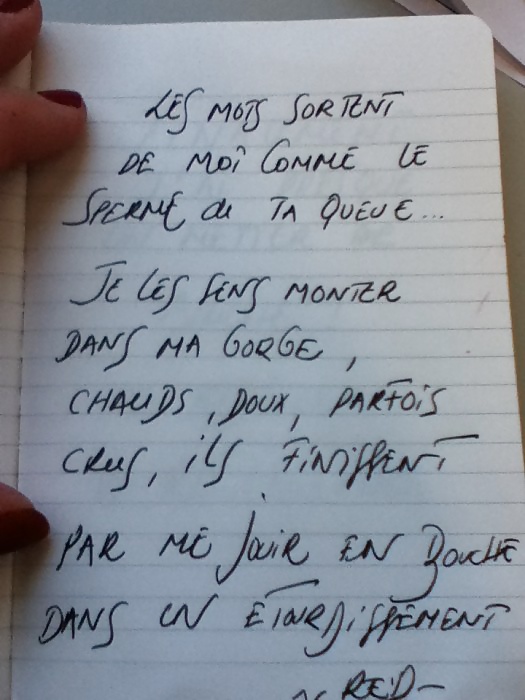 LES MOTS SORTENT
DE MOI COMME LE
SPERME de TA QUEUE...
JE LES SENS MONTER
DANS MA GORGE,
CHAUDS, DOUX, PARFOIS
CRUS, ILS FINISSENT
PAR ME JOUIR EN BOUCHE
DANS UN ETOURDISSEMENT